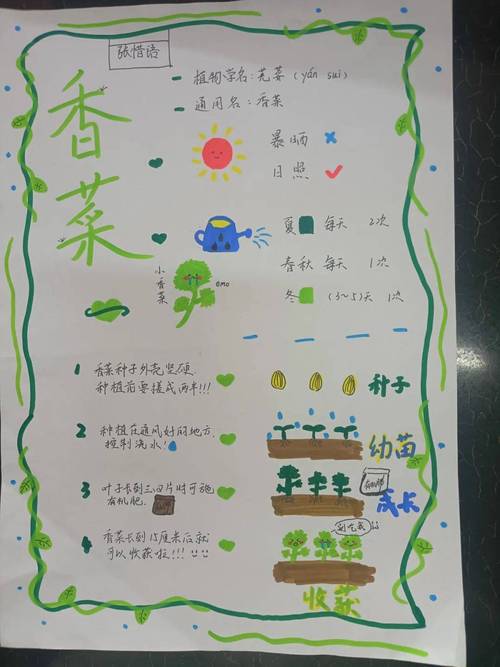 张惜语
香菜
植物学名：芫荽（yán sui）
通用名：香菜
暴晒 ×
日照 ✓
夏 每天 2次
春秋 每天 1次
冬 (3~5)天 1次
小香菜
emo
1 香菜种子外壳坚硬，
种植前要搓成两半!!!
2 种植在通风好的地方，
控制浇水!
3 叶子长到三四片时可施
有机肥.
4 香菜长到15厘米后就
可以收获啦!!!
种子
幼苗
成长
别吃我
收获